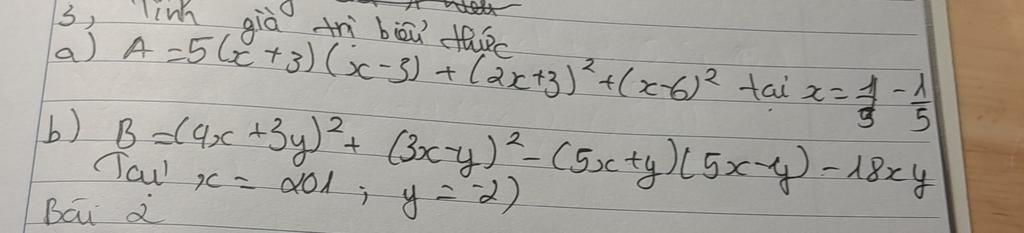 3, Tính giá trị biểu thức
a) A = 5(x + 3)(x - 3) + (2x + 3)² + (x - 6)² tại x = - 1/5
b) B = (4x + 3y)² + (3x - y)² - (5x + y)(5x - y) - 18xy
Tại x = 201 ; y = -2)
Bài 2